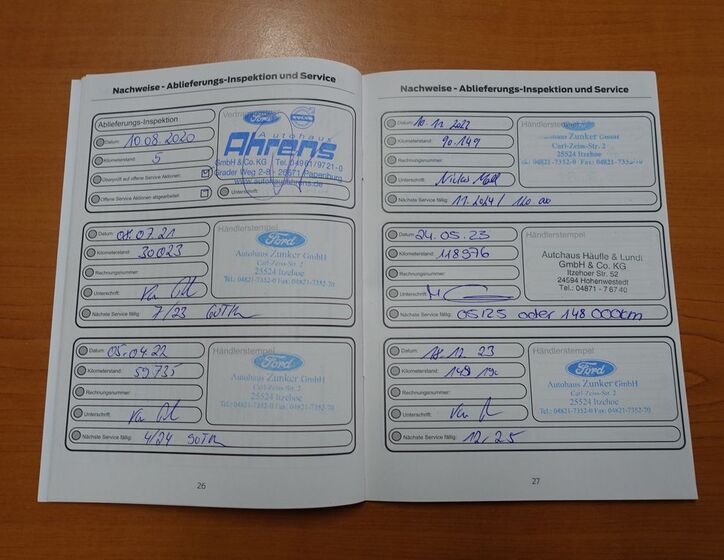 Nachweise - Ablieferungs-Inspektion und Service
Ablieferungs-Inspektion
Datum: 10.08.2020
Kilometerstand: 5
Überprüft auf offene Service Aktionen:
Offene Service Aktionen abgearbeitet:
Ford
VOLVO
Autohaus
Ahrens
GmbH & Co. KG Tel. 04961/9721-0
Grader Weg 2-8 - 26871 Papenburg
www.autohausahrens.de
Unterschrift:
Datum: 08.07.21
Kilometerstand: 30023
Rechnungsnummer:
Unterschrift:
Nächste Service fällig: 7/23 60Tkm
Händlerstempel
Ford
Autohaus Zunker GmbH
Carl-Zeiss-Str. 2
25524 Itzehoe
Tel.: 04821-7352-0 Fax: 04821-7352-70
Datum: 05.04.22
Kilometerstand: 59735
Rechnungsnummer:
Unterschrift:
Nächste Service fällig: 4/24 90Tkm
Händlerstempel
Ford
Autohaus Zunker GmbH
Carl-Zeiss-Str. 2
25524 Itzehoe
Tel.: 04821-7352-0 Fax: 04821-7352-70
26
Nachweise - Ablieferungs-Inspektion und Service
Datum: 10.11.2022
Kilometerstand: 90.149
Rechnungsnummer:
Unterschrift:
Nächste Service fällig: 11.2024 / 120
Händlerstempel
Ford
Autohaus Zunker GmbH
Carl-Zeiss-Str. 2
25524 Itzehoe
Datum: 24.05.23
Kilometerstand: 118976
Rechnungsnummer:
Unterschrift:
Nächste Service fällig: 05/25 oder 148 000km
Händlerstempel
Autohaus Häufle & Lundt
GmbH & Co. KG
Itzehoer Str. 52
24594 Hohenwestedt
Tel.: 04871 - 7 67 40
Datum: 12 23
Kilometerstand:
Rechnungsnummer:
Unterschrift:
Nächste Service fällig: 12/25
Händlerstempel
Ford
Autohaus Zunker GmbH
Carl-Zeiss-Str. 2
25524 Itzehoe
Tel.: 04821-7352-0 Fax: 04821-7352-70
27